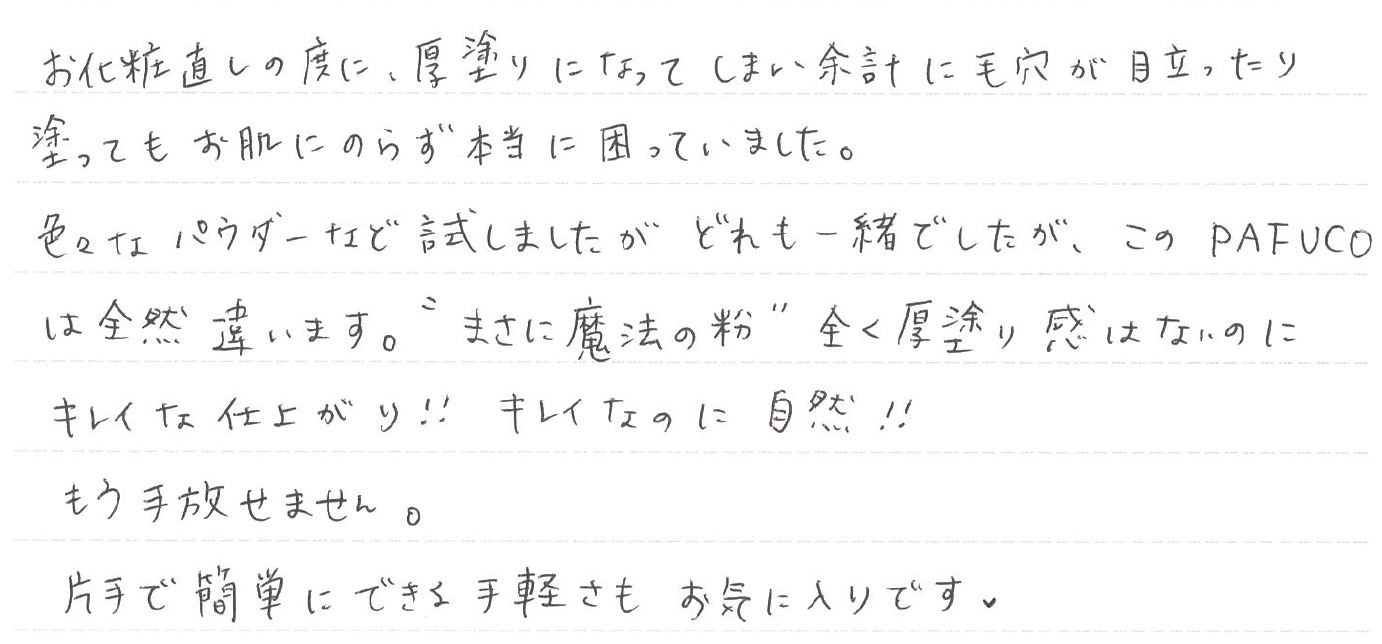 お化粧直しの度に、厚塗りになってしまい余計に毛穴が目立ったり
塗ってもお肌にのらず本当に困っていました。
色々なパウダーなど試しましたがどれも一緒でしたが、このPAFUCO
は全然違います。〝まさに魔法の粉〟全く厚塗り感はないのに
キレイな仕上がり!! キレイなのに自然!!
もう手放せません。
片手で簡単にできる手軽さもお気に入りです。